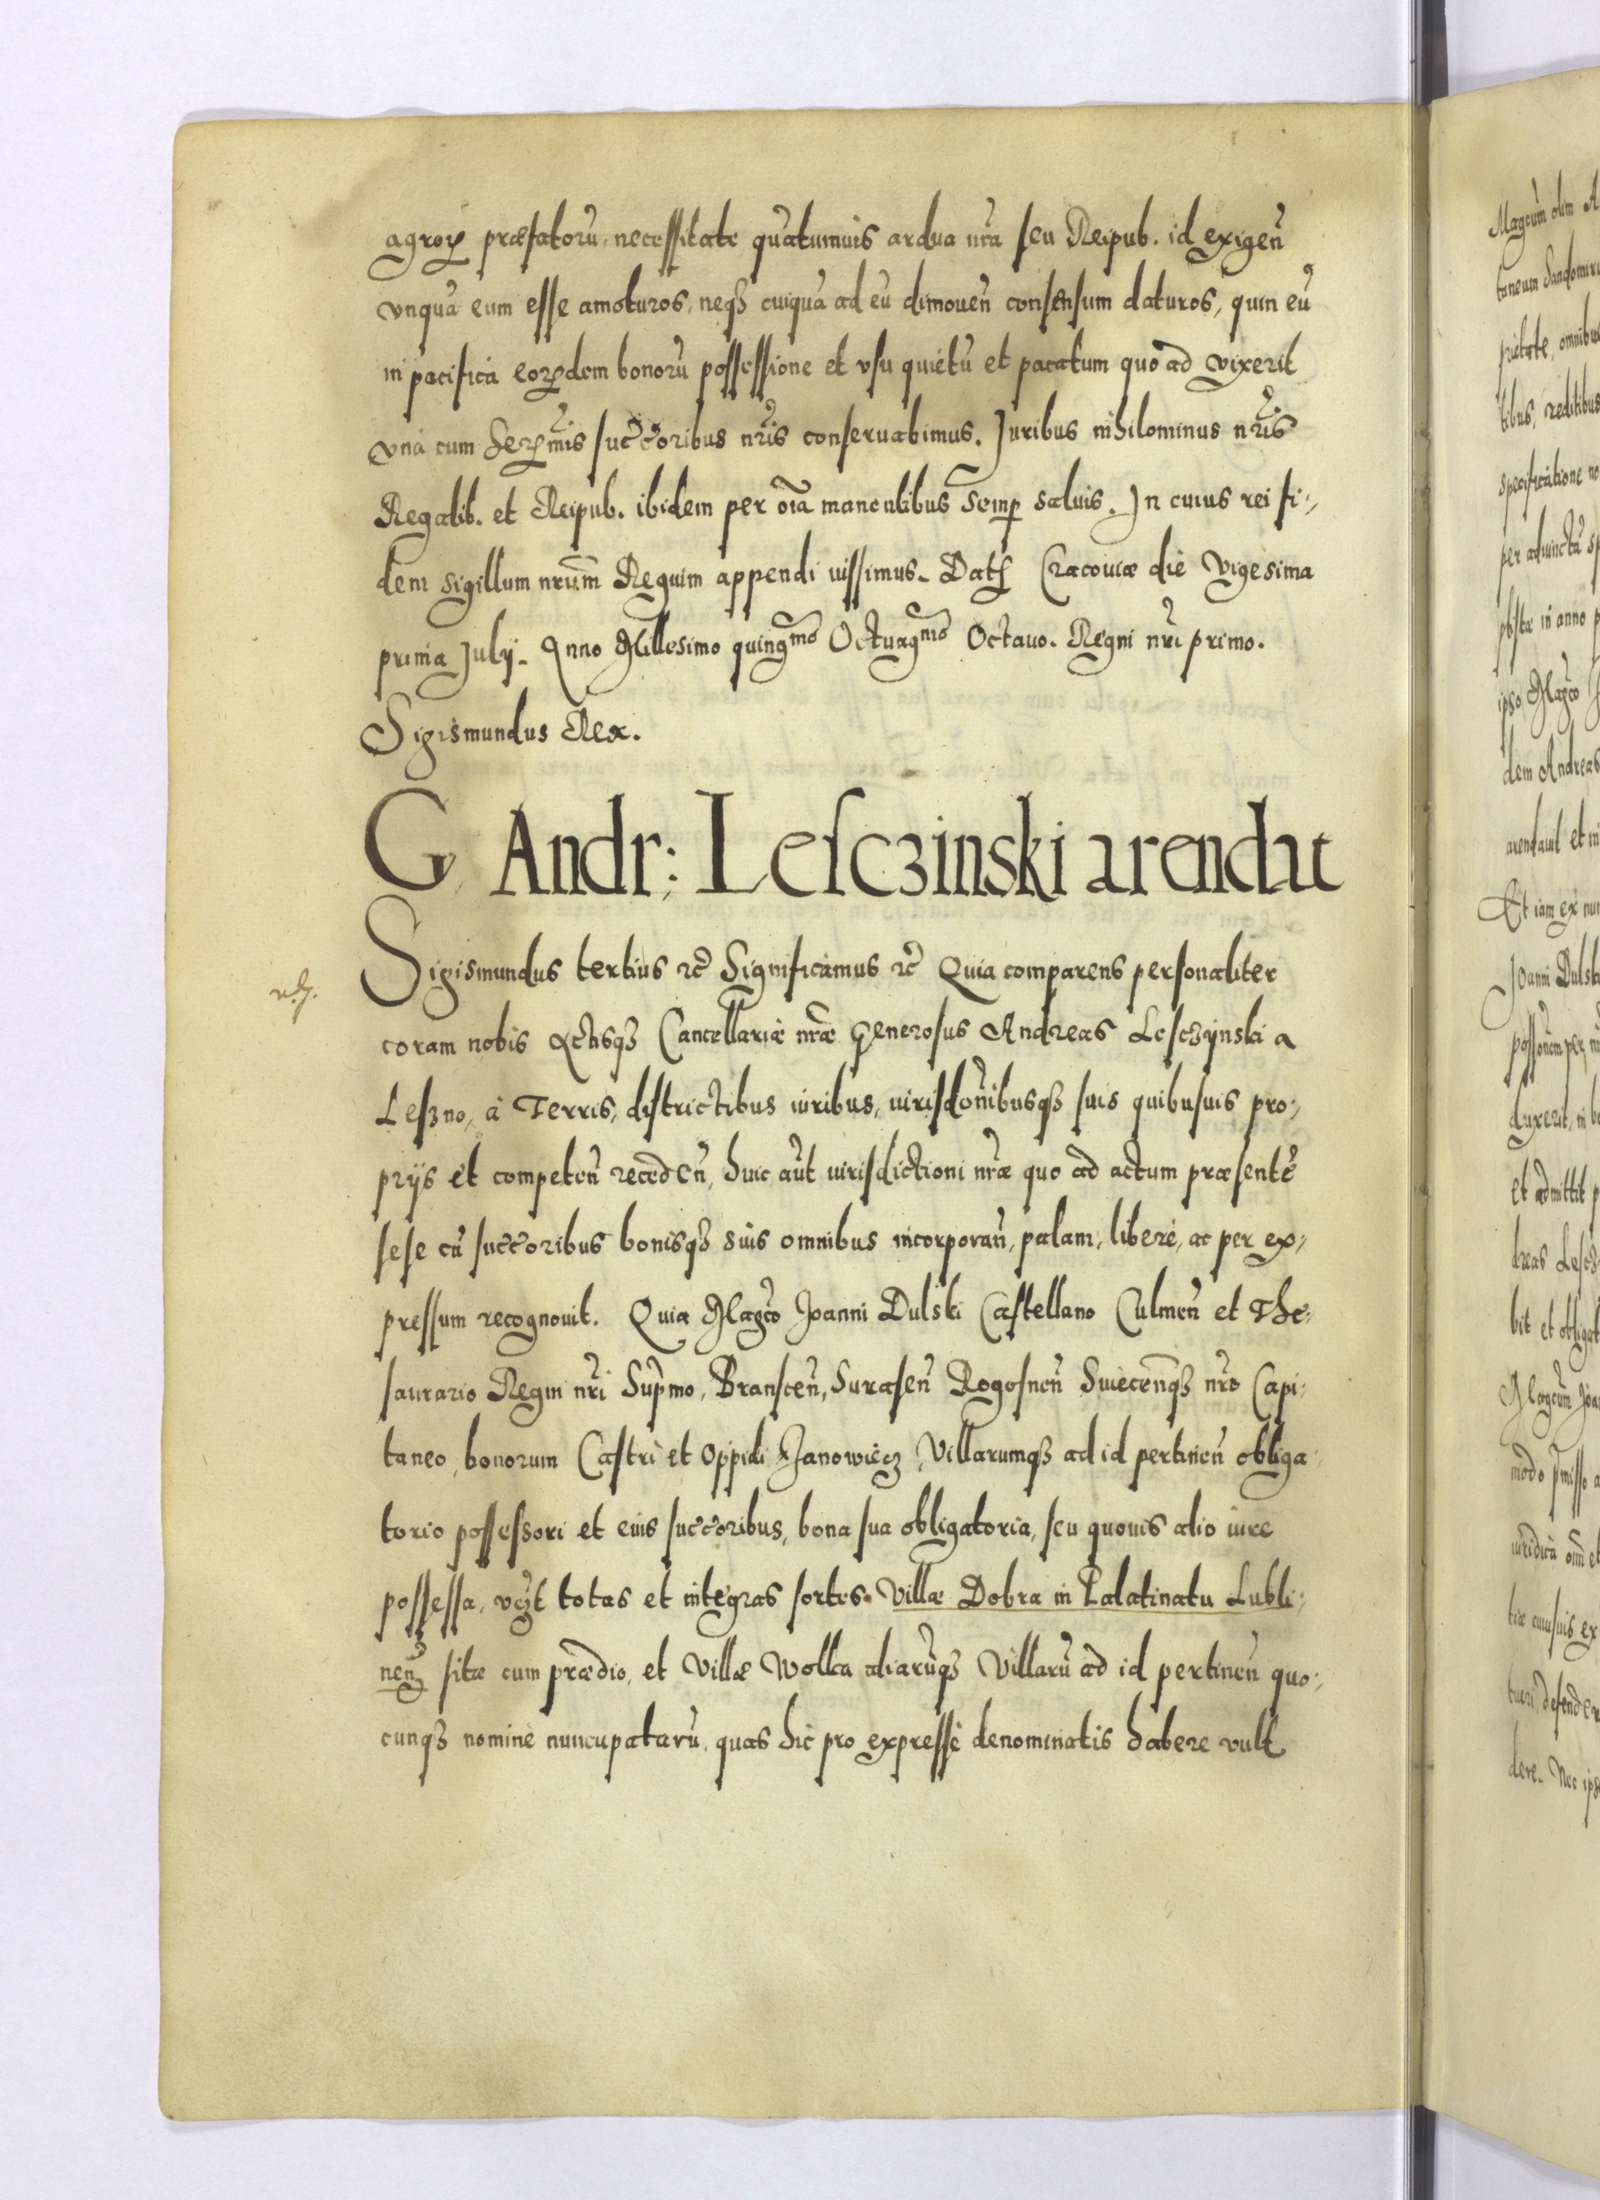 agroꝝ præfatorũ, necessitate quãtumuis ardua nrã seu Reipub. id exigeñ
vnquã eum esse amoturos, neqꝫ cuiquã ad eũ dimoueñ consensum daturos, quin eũ
in pacifica eoꝝdem bonorũ possessione et vsu quietũ et pacatum quo ad vixerit
vnà cum Serꝝmis succoribus nrĩs conseruabimus. Juribus nihilominus nrĩs
Regalib. et Reipub. ibidem per oĩa manentibus semꝑ saluis. In cuius rei fi-
dem sigillum nrũm Regium appendi iussimus. Datꝭ Cracouiæ die Vigesima
prima Julij. Anno Millesimo quingmo Octuagmo Octauo. Regni nrĩ primo.
Sigismundus Rex.
G. Andr: Lesczinski arendat
Sigismundus tertius ꝛc̃ Significamus ꝛc̃ Quia comparens personaliter
coram nobis Actisqꝫ Cancellariæ nrãe generosus Andreas Lesczÿnski a
Leszno, à Terris, districtibus iuribus, iurisdõnibusqꝫ suis quibusuis pro-
prijs et competeñ recedeñ, huic aũt iurisdictioni nrãe quo ad actum præsentẽ
sese cũ succoribus bonisqꝫ suis omnibus incorporañ, palam, liberè, ac per ex-
pressum recognouit. Quia Magco Joanni Dulski Castellano Culmeñ et The-
saurario Regni nrĩ Supmo, Bransceñ, Suraseñ Rogosneñ Suieceñqꝫ nrõ Capi-
taneo, bonorum Castri et Oppidi Janowiecz, Villarumqꝫ ad id pertineñ obliga-
torio possessori et eius succoribus, bona sua obligatoria, seu quouis alio iure
possessa, vꝫt totas et integras sortes Villæ Dobra in Palatinatu Lubli-
neñ sitæ cum prædio, et Villæ Wolka aliarũqꝫ Villarũ ad id pertineñ quo-
cunqꝫ nomine nuncupatarũ, quas hic pro expresse denominatis habere vult